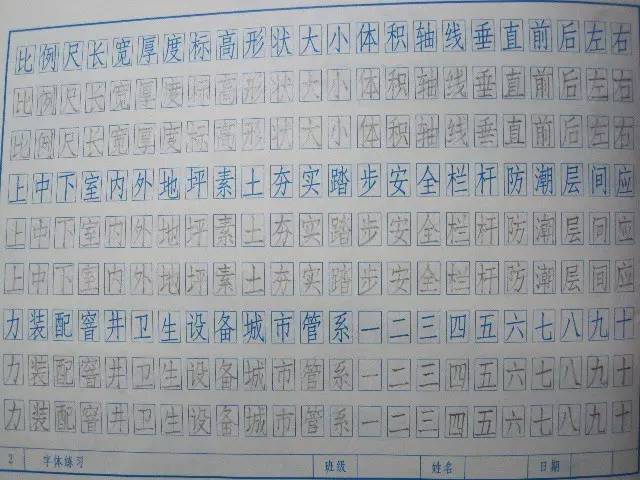 比例尺长宽厚度标高形状大小体积轴线垂直前后左右
比例尺长宽厚度标高形状大小体积轴线垂直前后左右
比例尺长宽厚度标高形状大小体积轴线垂直前后左右
上中下室内外地坪素土夯实踏步安全栏杆防潮层间应
上中下室内外地坪素土夯实踏步安全栏杆防潮层间应
上中下室内外地坪素土夯实踏步安全栏杆防潮层间应
力装配窨井卫生设备城市管系一二三四五六七八九十
力装配窨井卫生设备城市管系一二三四五六七八九十
力装配窨井卫生设备城市管系一二三四五六七八九十
2 字体练习 班级 姓名 日期